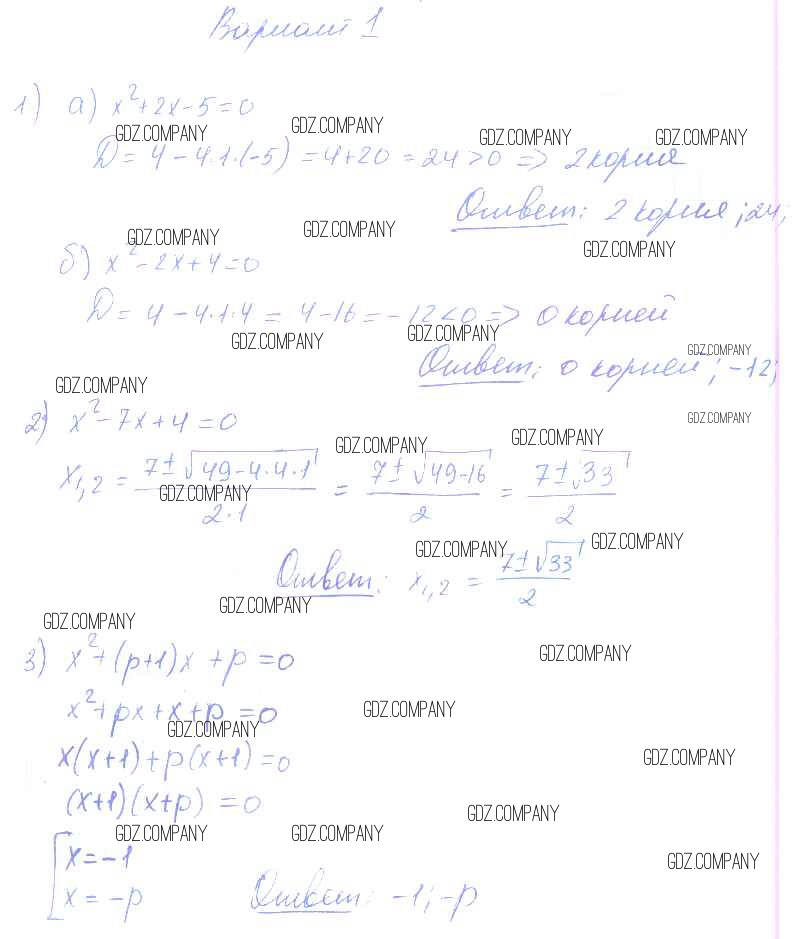 Вариант 1
1) а) x²+2x-5=0
GDZ.COMPANY GDZ.COMPANY GDZ.COMPANY GDZ.COMPANY
D = 4 - 4·1·(-5) = 4+20 = 24>0 => 2 корня
Ответ: 2 корня; 24;
GDZ.COMPANY GDZ.COMPANY GDZ.COMPANY
б) x²-2x+4=0
D = 4 - 4·1·4 = 4-16 = -12<0 => 0 корней
GDZ.COMPANY GDZ.COMPANY GDZ.COMPANY
Ответ: 0 корней; -12;
GDZ.COMPANY GDZ.COMPANY
2) x²-7x+4=0
GDZ.COMPANY GDZ.COMPANY
x₁,₂ = (7±√(49-4·4·1))/(2·1) = (7±√(49-16))/2 = (7±√33)/2
GDZ.COMPANY
GDZ.COMPANY GDZ.COMPANY
Ответ: x₁,₂ = (7±√33)/2
GDZ.COMPANY GDZ.COMPANY
3) x²+(p+1)x+p=0
GDZ.COMPANY
x²+px+x+p=0
GDZ.COMPANY GDZ.COMPANY
x(x+1)+p(x+1)=0
GDZ.COMPANY
(x+1)(x+p)=0
GDZ.COMPANY
GDZ.COMPANY GDZ.COMPANY GDZ.COMPANY
[x=-1
x=-p Ответ: -1; -p